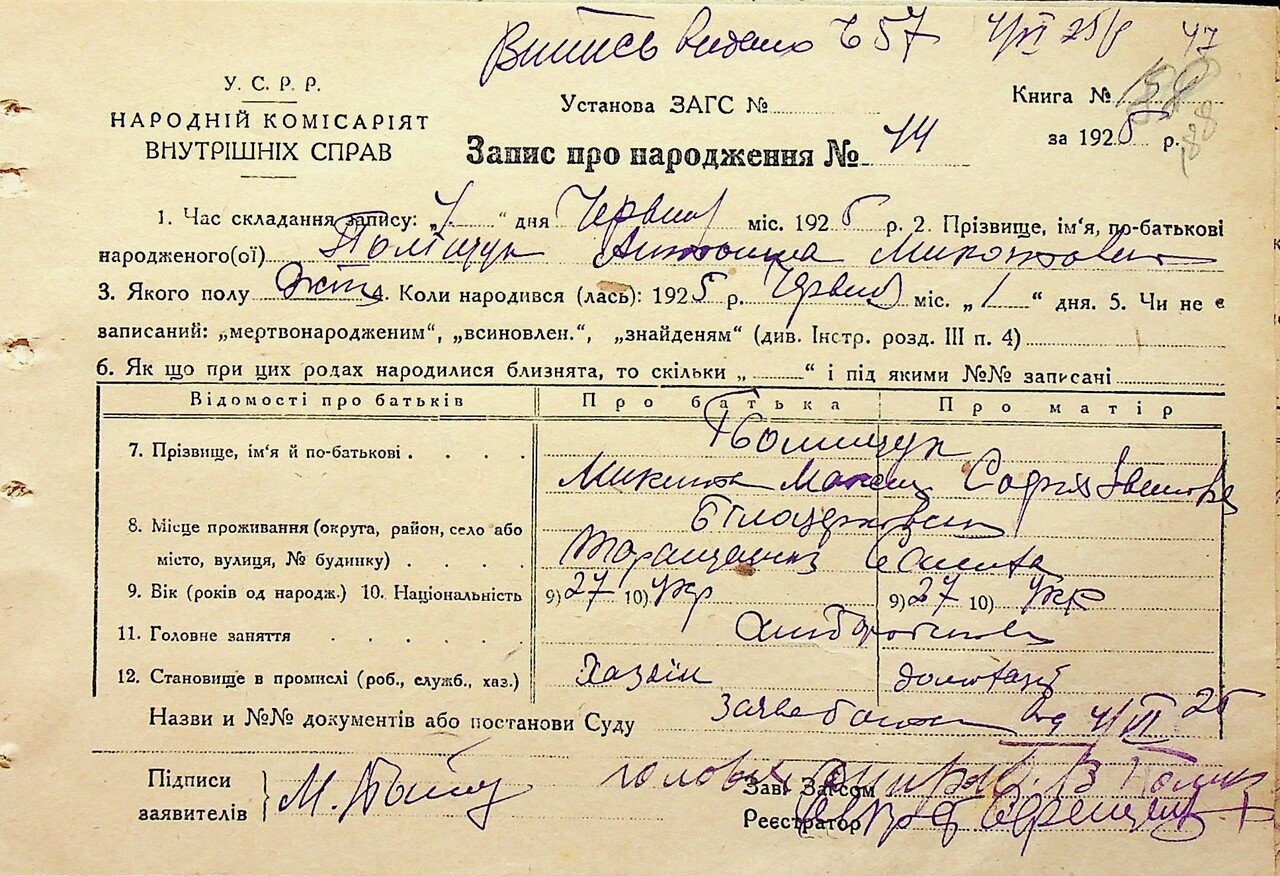 Витись видано Ч 57 4/VI 25 р 47
У. С. Р. Р.
НАРОДНІЙ КОМІСАРІЯТ
ВНУТРІШНІХ СПРАВ
Установа ЗАГС №
Книга №
за 1925 р.
188
Запис про народження № 44
1. Час складання запису: „4 “ дня Червня міс. 1925 р. 2. Прізвище, ім'я, по-батькові
народженого(ої) Поліщук Антоніна Микитовна
3. Якого полу 4. Коли народився (лась): 1925 р. Червня міс. „1 “ дня. 5. Чи не є
записаний: „мертвонародженим“, „всиновлен.“, „знайденям“ (див. Інстр. розд. III п. 4)
6. Як що при цих родах народилися близнята, то скільки „ “ і під якими №№ записані
Відомості про батьків Про батька Про матір
7. Прізвище, ім'я й по-батькові . . . . Полищук
Микита Софія Іванова
8. Місце проживання (округа, район, село або Білоцерковськ
місто, вулиця, № будинку) . . . . Таращанськ
9. Вік (років од народж.) 10. Національність 9) 27 10) Укр 9) 27 10) Укр
11. Головне заняття . . . . . . Хліборобство
12. Становище в промислі (роб., служб., хаз.) Хазяїн
Назви и №№ документів або постанови Суду батька від 4/VI 25
Підписи
заявителів
М.
голова
Заві Загсом
Реєстратор